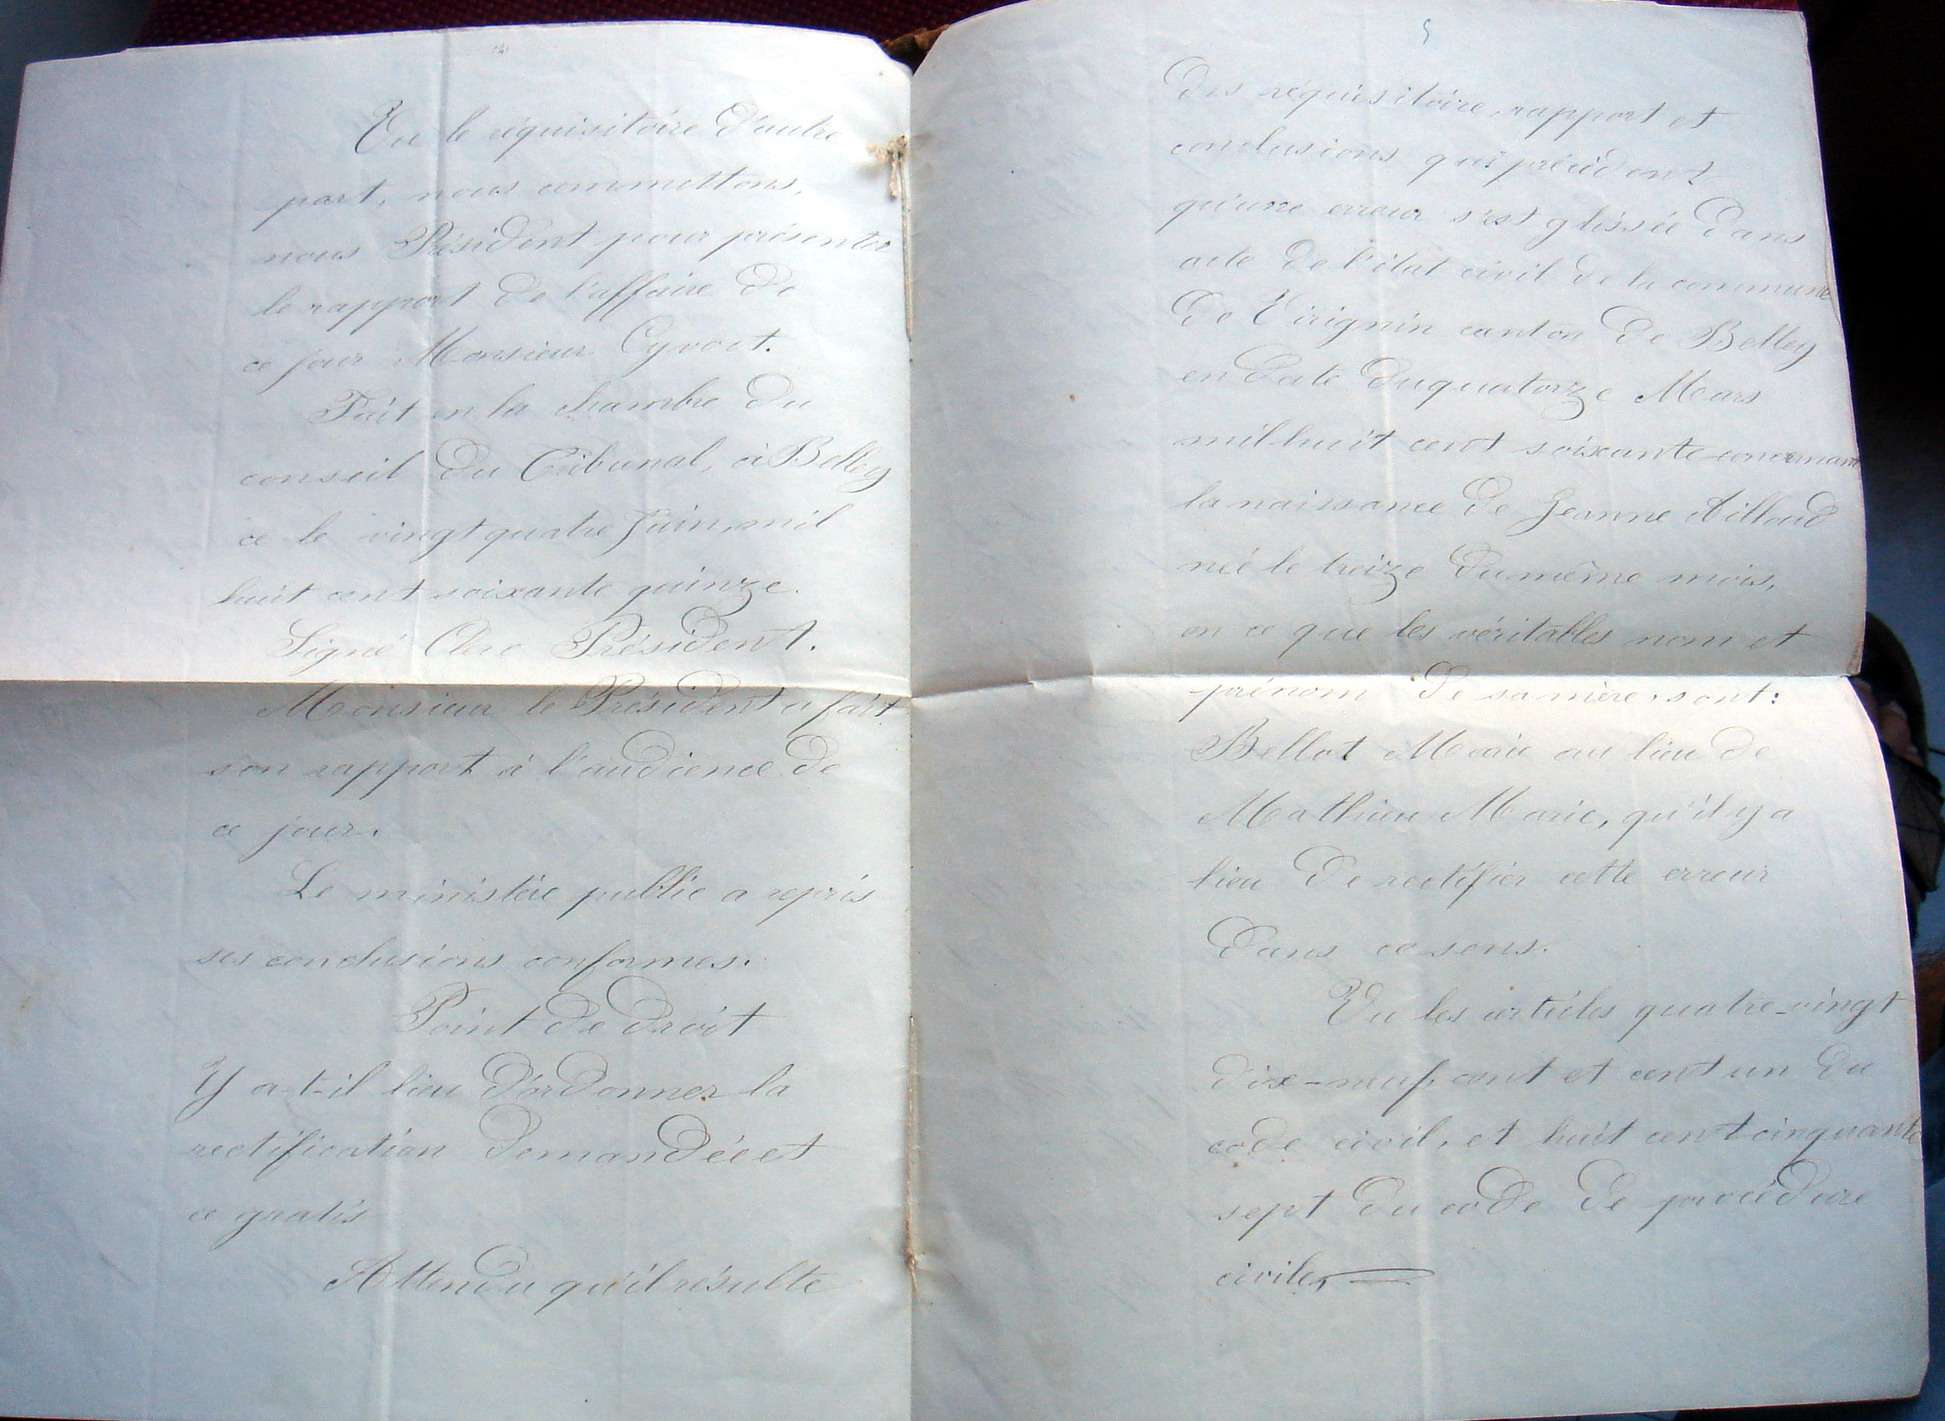 Vu le réquisitoire d'autre
part, nous commettons,
nous Président pour présenter
le rapport de l'affaire de
ce jour Monsieur Cyvoct.
Fait en la chambre du
conseil du Tribunal, à Belley
ce le vingt quatre Juin, mil
huit cent soixante quinze.
Signé Clerc Président.
Monsieur le Président a fait
son rapport à l'audience de
ce jour.
Le ministère public a repris
ses conclusions conformes.
Point de droit
Y a-t-il lieu d'ordonner la
rectification demandée et
ce gratis
Attendu qu'il résulte
5
des réquisitoire, rapport et
conclusions qui précédent
qu'une erreur s'est glissée dans
acte de l'état civil de la commune
de Virignin canton de Belley
en date du quatorze Mars
mil huit cent soixante concernant
la naissance de Jeanne Billoud
née le treize du même mois,
en ce que les véritables nom et
prénom de sa mère, sont:
Bellot Marie au lieu de
Mathieu Marie, qu'il y a
lieu de rectifier cette erreur
dans ce sens.
Vu les articles quatre-vingt
dix-neuf, cent et cent un du
code civil, et huit cent cinquante
sept du code de procédure
civile,